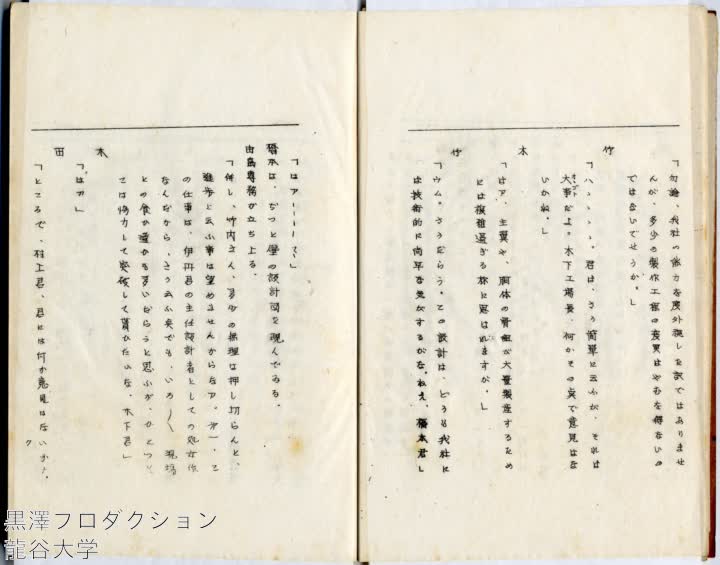 「勿論、我社の能力を度外視した訳ではありませ
んが、多少の製作工程の変更はやむを得ないの
ではないでせうか。」
竹
「ハヽヽヽヽ。君は、さう簡単に云ふが、それは
大事だよ。木下工場長、何かその点で意見はな
いかね。」
木
「はア、主翼や、胴体の骨組が大量製産するため
には複雑過ぎる様に思はれますが。」
竹
「ウム。さうだらう。この設計は、どうも我社に
は技術的に尚早な気がするがな。ねえ、橋本君」
「はアーーーーで、」
橋本は、じつと壁の設計図を睨んでゐる。
由島専務が立ち上る。
「併し、竹内さん、多少の無理は押し切らんと、
進歩と云ふ事は望めませんからなア。第一、こ
の仕事は、伊丹君の主任設計者としての処女作
なんだから、さう云ふ点でも、いろ〱現場
との食か違かも多いだらうと思ふが、ひとつ
ては協力して突破して貰ひたいな、木下君」
木
「はア」
田
「ところで、村上君、君には何か意見はないか？
ク
黒澤プロダクション
龍谷大学